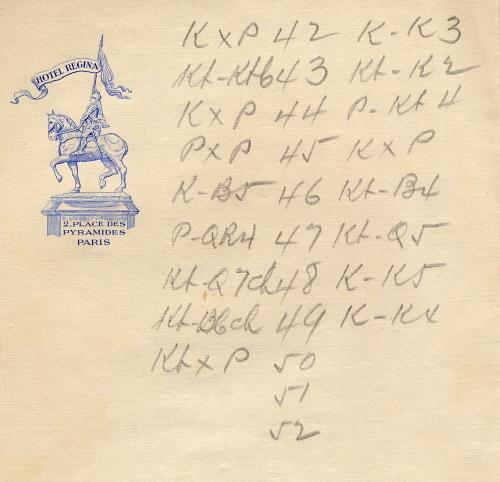 HOTEL REGINA
2, PLACE DES
PYRAMIDES
PARIS
K x P 42 K - K3
Kt - Kt6 43 Kt - K2
K x P 44 P - Kt 4
P x P 45 K x P
K - B5 46 Kt - B4
P - QR4 47 Kt - Q5
Kt - Q7ch 48 K - K5
Kt - B6ch 49 K - Kx
Kt x P 50
51
52